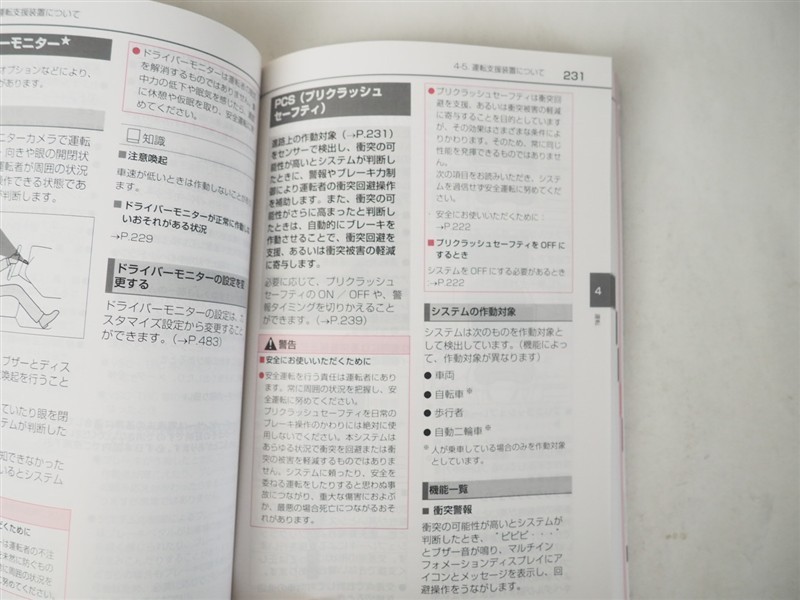 運転支援装置について
ーモニター★
オプションなどにより、
があります。
ニターカメラで運転
向きや眼の開閉状
転者が周囲の状況
操作できる状態であ
断します。
ブザーとディス
喚起を行うこと
ていたり眼を閉
テムが判断した
知できなかった
いるとシステム
だくために
は運転者の不注
を未然に防ぐもの
に周囲の状況を
努めてください。
●ドライバーモニターは運転者の
を解消するものではありません。
中力の低下や眠気を感じたら、
に休憩や仮眠を取り、安全運
めてください。
知識
■注意喚起
車速が低いときは作動しないことが
ます。
■ドライバーモニターが正常に作動し
いおそれがある状況
→P.229
ドライバーモニターの設定を変
更する
ドライバーモニターの設定は、カ
スタマイズ設定から変更すること
ができます。(→P.483)
4-5. 運転支援装置について
231
PCS(プリクラッシュ
セーフティ)
道路上の作動対象(→P.231)
をセンサーで検出し、衝突の可
能性が高いとシステムが判断し
たときに、警報やブレーキ力制
御により運転者の衝突回避操作
を補助します。また、衝突の可
能性がさらに高まったと判断し
たときは、自動的にブレーキを
作動させることで、衝突回避を
支援、あるいは衝突被害の軽減
に寄与します。
必要に応じて、プリクラッシュ
セーフティの ON / OFF や、警
報タイミングを切りかえること
ができます。(→P.239)
警告
■安全にお使いいただくために
●安全運転を行う責任は運転者にあり
ます。常に周囲の状況を把握し、安
全運転に努めてください。
プリクラッシュセーフティを日常の
ブレーキ操作のかわりには絶対に使
用しないでください。本システムは
あらゆる状況で衝突を回避または衝
突の被害を軽減するものではありま
せん。システムに頼ったり、安全を
委ねる運転をしたりすると思わぬ事
故につながり、重大な傷害におよぶ
か、最悪の場合死亡につながるおそ
れがあります。
●プリクラッシュセーフティは衝突回
避を支援、あるいは衝突被害の軽減
に寄与することを目的としています
が、その効果はさまざまな条件によ
りかわります。そのため、常に同じ
性能を発揮できるものではありませ
ん。
次の項目をお読みいただき、システ
ムを過信せず安全運転に努めてくだ
さい。
・安全にお使いいただくために:
→P.222
■プリクラッシュセーフティを OFF に
するとき
システムを OFF にする必要があるとき
:→P.222
システムの作動対象
システムは次のものを作動対象と
して検出しています。(機能によっ
て、作動対象が異なります)
●車両
●自転車※
●歩行者
●自動二輪車※
※人が乗車している場合のみを作動対象
としています。
機能一覧
■ 衝突警報
衝突の可能性が高いとシステムが
判断したとき、“ピピピ・・・”
とブザー音が鳴り、マルチイン
フォメーションディスプレイにア
イコンとメッセージを表示し、回
避操作をうながします。
4
運転